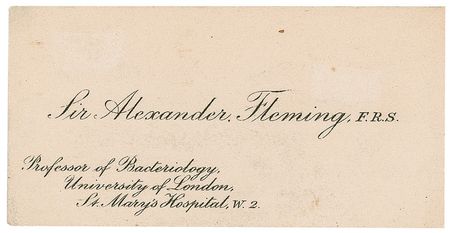 Sir Alexander Fleming, F.R.S.
Professor of Bacteriology,
University of London,
St. Mary's Hospital, W. 2.